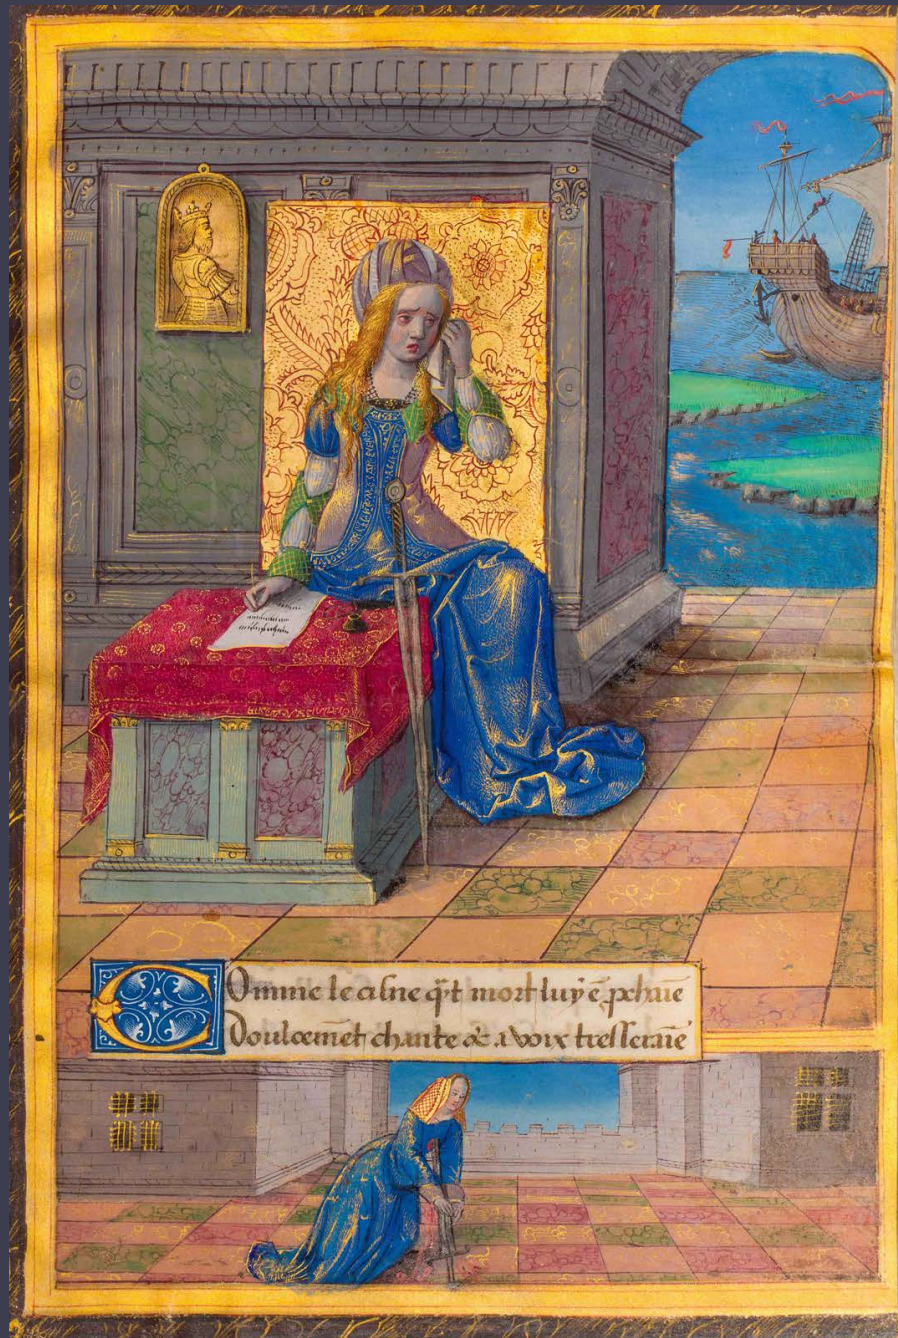 Comme le cisne q̃t mort luy ẽ ꝓchaĩe
Doulcemẽt chante & a voix tresseraĩe